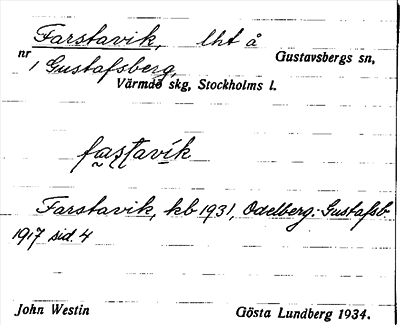 Farstavik, lht å
nr 1 Gustafsberg, Gustavsbergs sn,
Värmdö skg, Stockholms l.
fas̯ṭavík
Farstavik, kb 1931, Odelberg: Gustafsb
1917 sid. 4
John Westin Gösta Lundberg 1934.